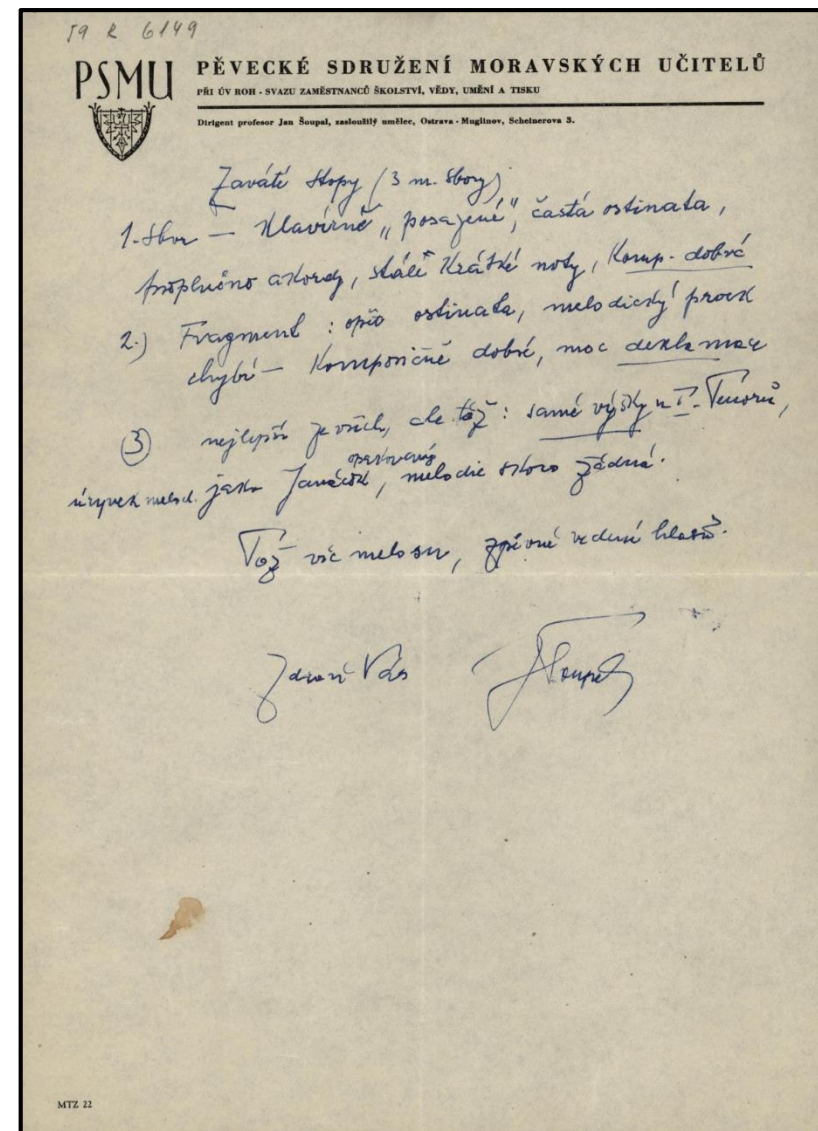 59 R 6149
PSMU
PĚVECKÉ SDRUŽENÍ MORAVSKÝCH UČITELŮ
PŘI ÚV ROH - SVAZU ZAMĚSTNANCŮ ŠKOLSTVÍ, VĚDY, UMĚNÍ A TISKU
Dirigent profesor Jan Šoupal, zasloužilý umělec, Ostrava - Muglinov, Scheinerova 3.
Zaváté stopy (3 m. sbory)
1. sbor — Klavírně „posazené", častá ostinata,
akordy, stálé krátké noty, Komp. dobré
2.) Fragment : opět ostinata, melodický prvek
chybí — Komposičně dobré, moc deklamace
3 nejlepší ze všech, ale též : samé výšky u I. Tenorů,
opakovaný
úryvek melod. jako Janáček, melodie skoro žádná.
Tož víc melosu, zpěvné vedení hlasů.
Zdraví Vás JŠoupal
MTZ 22